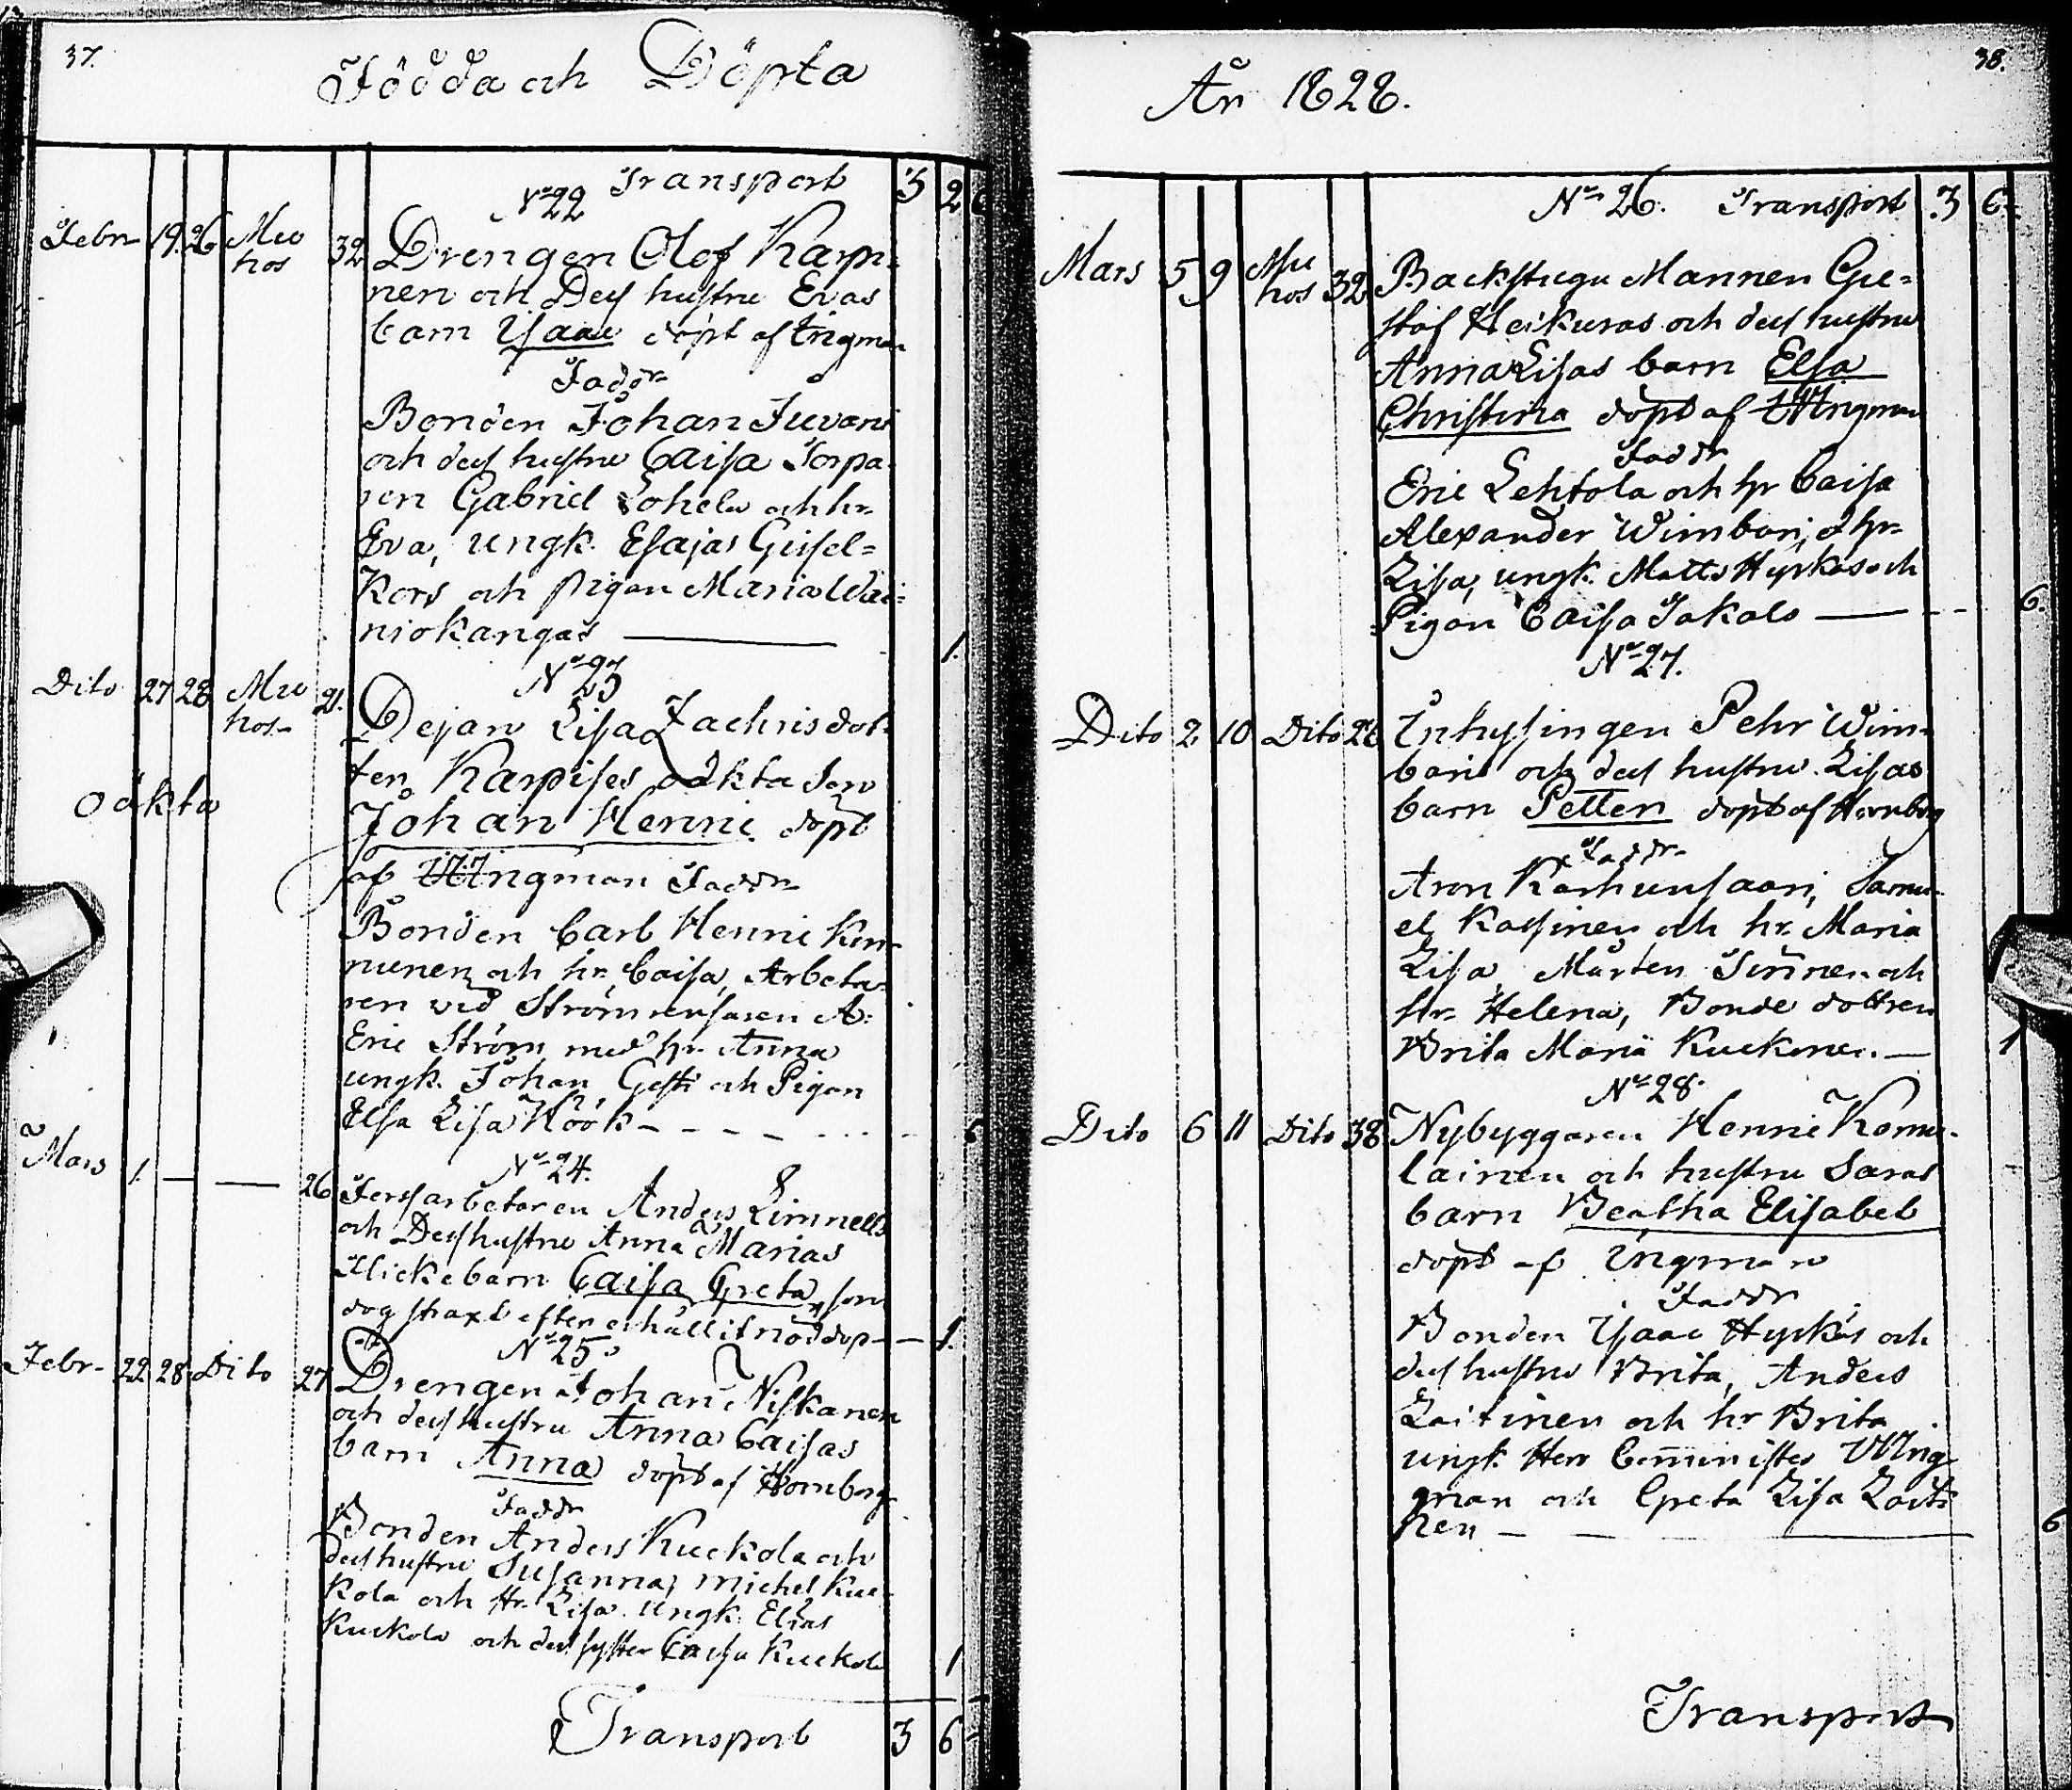 37.
Födda och Döpta
Transport 3 2 6
N:o 22
Febr 19. 26 Muhos 32 Drengen Olof Karp=
nen och Dess hustru Evas
barn Isaac döpt af Ingman
Faddr
Bonden Johan Juvani
och dess hustru Caisa Torpa
ren Gabriel Lohela och hr
Eva, ungk. Esajas Geisel=
Kors och pigan Maria Wäi=
niokangas 1.
N:o 23
Dito 27 28 Muhos 21. Dejan Lisa Zachrisdot
ter Karpises oäkta Son
oäkta
Johan Henric döpt
af Ingman Faddr
Bonden Carl Henric Kin
nunen och hr. Caisa, Arbeta
ren vid Strömrensaren A:
Eric Ström med hr. Anna
ungk. Johan Gesti och Pigan
Elsa Lisa Höök
N:o 24.
Mars 1. 26 Tersarbetaren Anders Limnells
och Dess hustru Anna Marias
Flickebarn Caisa Greta, som
dog straxt efter erhållit nöddop 1.
N:o 25
Febr 22 28 Dito 27 Drengen Johan Niskanen
och dess hustru Anna Caisas
barn Anna döpt af Hornborg
Faddr
Bonden Anders Kuckola och
dess hustru Susanna, Michel Kuc
kola och Hr. Lisa. ungk. Elias
Kuckola och dess syster Caisa Kuckola 1
Transport 3 6
38.
År 1828.
N:o 26. Transport 3 6
Mars 5 9 Muhos 32 Backstugu Mannen Gu=
staf Heikuras och dess hustru
Anna Lisas barn Elsa
Christina döpt af Ingman
Faddr
Eric Lehtola och hr Caisa
Alexander Wimbari, o hr
Lisa, ungk. Matts Hyrkäs och
Pigan Caisa Jakals 6.
N:o 27.
Dito 2 10 Dito 26 Inhysingen Pehr Wim
bari och dess hustru Lisas
barn Petter döpt af Hornborg
Faddr
Aron Karhunsaari, Samu
el Kassinen och hr. Maria
Lisa, Mårten Sirinen och
hr. Helena, Bonde dottren
Brita Maria Kuckonen. 1
N:o 28.
Dito 6 11 Dito 38 Nybyggaren Henric Komu
lainen och hustru Saras
barn Beatha Elisabet
döpt af Ingman
Faddr
Bonden Isaac Hyrkäs och
dess hustru Brita, Anders
Laitinen och hr Brita
ungk. Herr Comminister Ing
man och Greta Lisa Laiti
nen 6
Transport